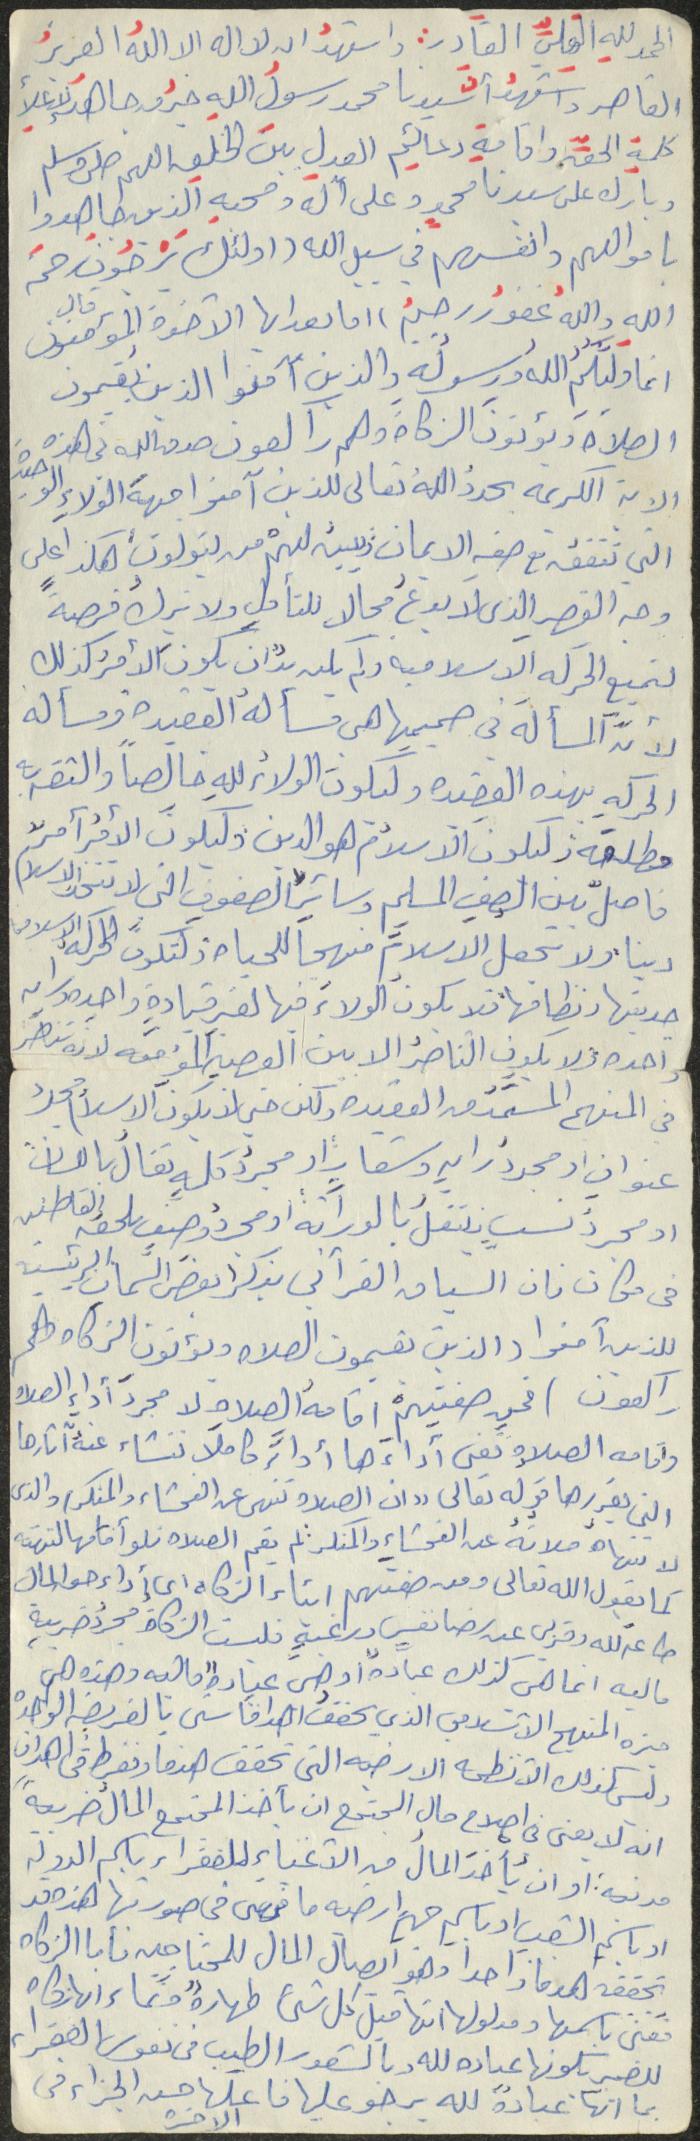 الحمد لله القوي القادر: واشهد ان لا اله الا الله العزيز
القاهر واشهد أن سيدنا محمد رسول الله خير من جاهد لإعلاء
كلمة الحق واقامة دعائم العدل بين الخليقه اللهم صل وسلم
وبارك على سيدنا محمدٍ وعلى آله وصحبه الذين جاهدوا
باموالهم وانفسهم في سبيل الله ((اولئك يرجون رحمة
الله والله غفور رحيم)) اما بعد ايها الأخوة المؤمنون قال
انما وليكم الله ورسوله والذين آمنوا الذين يقيمون
الصلاة ويؤتون الزكاة وهم راكعون صدق الله في هذه
الايه الكريمه يحدد الله تعالى للذين آمنوا جهة الولاء الوحيدة
التي تتفق مع صفه الايمان ويبين لهم من يتولون هكذا على
وجه القصر الذى لا يدع مجالا للتأول ولا يترك فرصةً
لتميع الحركه الاسلاميه ولم يكن بد ان يكون الأمر كذلك
لأن المسألة في صميمها هي مسألة العقيده ومسألة
الحركه بهذه العقيده وليكون الولاء لله خالصاً والثقه به
مطلقة وليكون الاسلام هو الدين وليكون الأمر أمر
فاصل بين الصف المسلم وسائر الصفوف التى لا تتخذ الاسلام
دينا ولا تجعل الاسلام منهجا للحياة ولتكون للحركه الاسلاميه
جديتها ونظامها فلا يكون الولاء فيها لغير قيادةٍ واحده ورايه
واحده ولا يكون التناصر الا بين العصبه المؤمنه لانه تناصر
في المنهج المستمد من العقيده ولكن حتى لا يكون الاسلام مجرد
عنوان او مجرد رايه وشعار او مجرد كلمه تقال باللسان
او مجرد نسب ينتقل بالوراثه أو مجرد وصف يلحق القاطنين
في مكان فان السياق القرآني يذكر بعض السمات الرئيسيه
للذين آمنوا (الذين يقيمون الصلاه ويؤتون الزكاه وهم
راكعون) فمن صفتهم اقامة الصلاه لا مجرد أداء الصلاه
واقامه الصلاة تعنى أداءها أداءً كاملاً تنشاء عنه آثارها
التي يقررها قوله تعالى ((ان الصلاه تنهى عن الفحشاء والمنكر)) والذى
لا تنهاه صلاته عن الفحشاء والمنكر لم يقم الصلاه فلو أقامها لنهته
كما يقول الله تعالى ومن صفتهم ايتاء الزكاه اى أداء حق المال
طاعة لله وقربى عن رضا نفس ورغبة فليست الزكاة مجرد ضريبة
ماليه انما هى كذلك عبادة أو هى عبادة ماليه وهذه هى
ميزه المنهج الاسلامي الذي يحقق اهدافا شتى بالفريضه الواحده
وليس كذلك الأنظمه الارضيه التى تحقق هدفا وتفرط في اهداف
انه لا يغنى في اصلاح حال المجتمع ان يأخذ المجتمع المال ضريبةً
مدنية او ان يأخذ المال من الأغنياء للفقراء باسم الدولة
او باسم الشعب او باسم جهةٍ ارضيه ما فهى في صورتها هذه قد
تحقق هدفا واحداً وهو ايصال المال للمحتاجين فأما الزكاه
فتعنى باسمها ومدلولها انها قبل كل شئ طهارة ونماء انها زكاه
للضمير بكونها عباده لله وبالشعور الطيب فى نفوس الفقراء
بما انها عبادةً لله يرجو عليها فاعلها حسن الجزاء في
الاخره